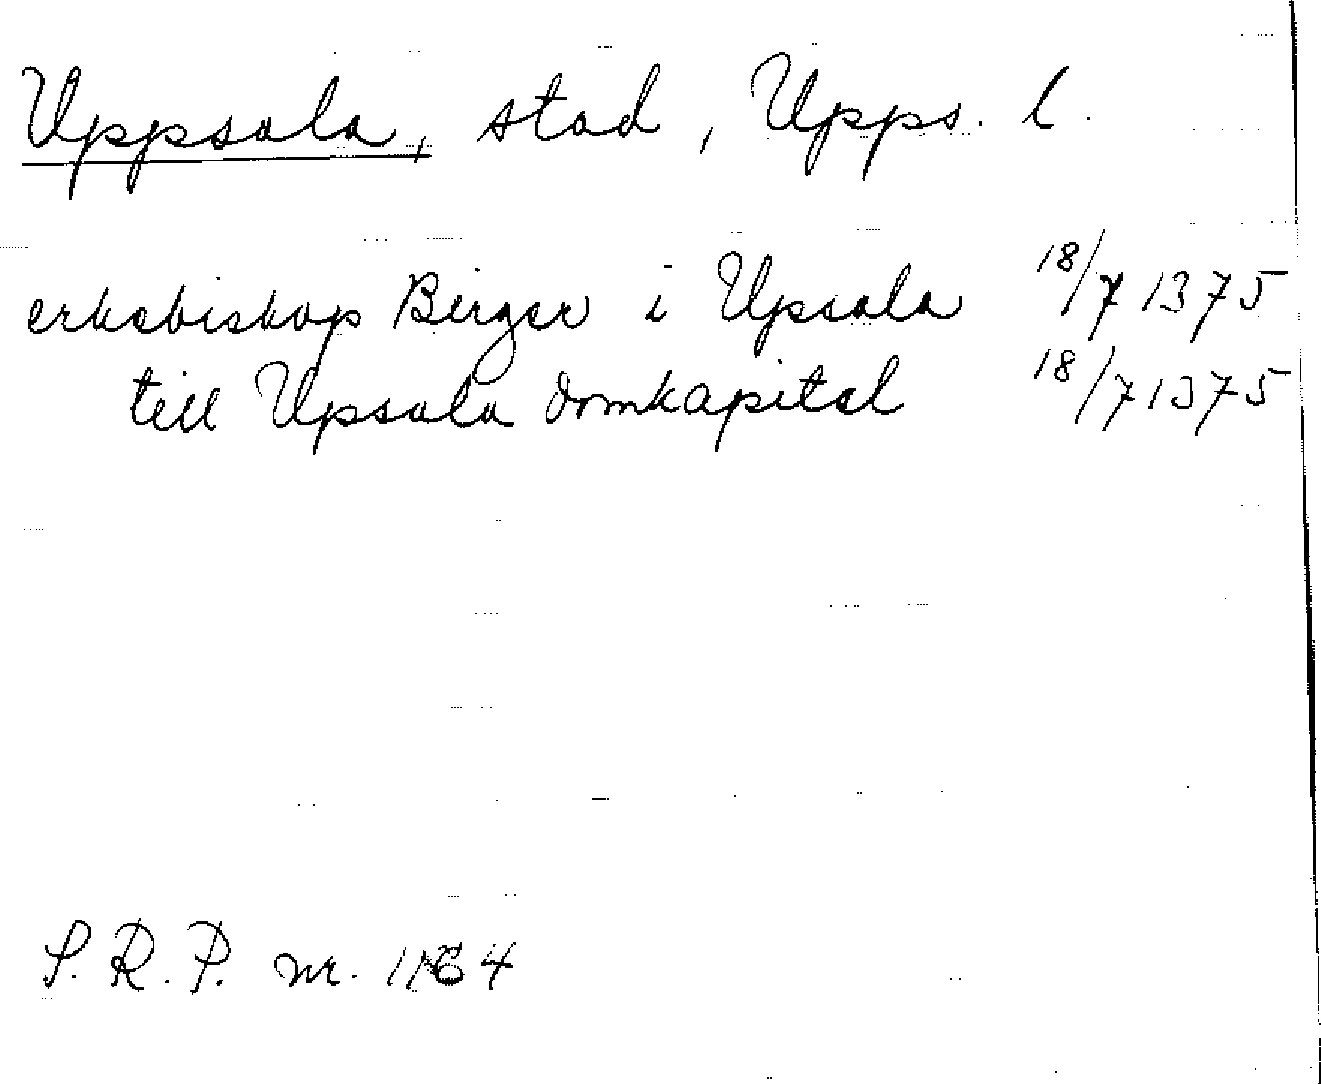 Uppsala, stad, Upps. l.
erkebiskop Birger i Upsala 18/7 1375
till Upsala domkapitel 18/7 1375
S. R. P. nr. 1164